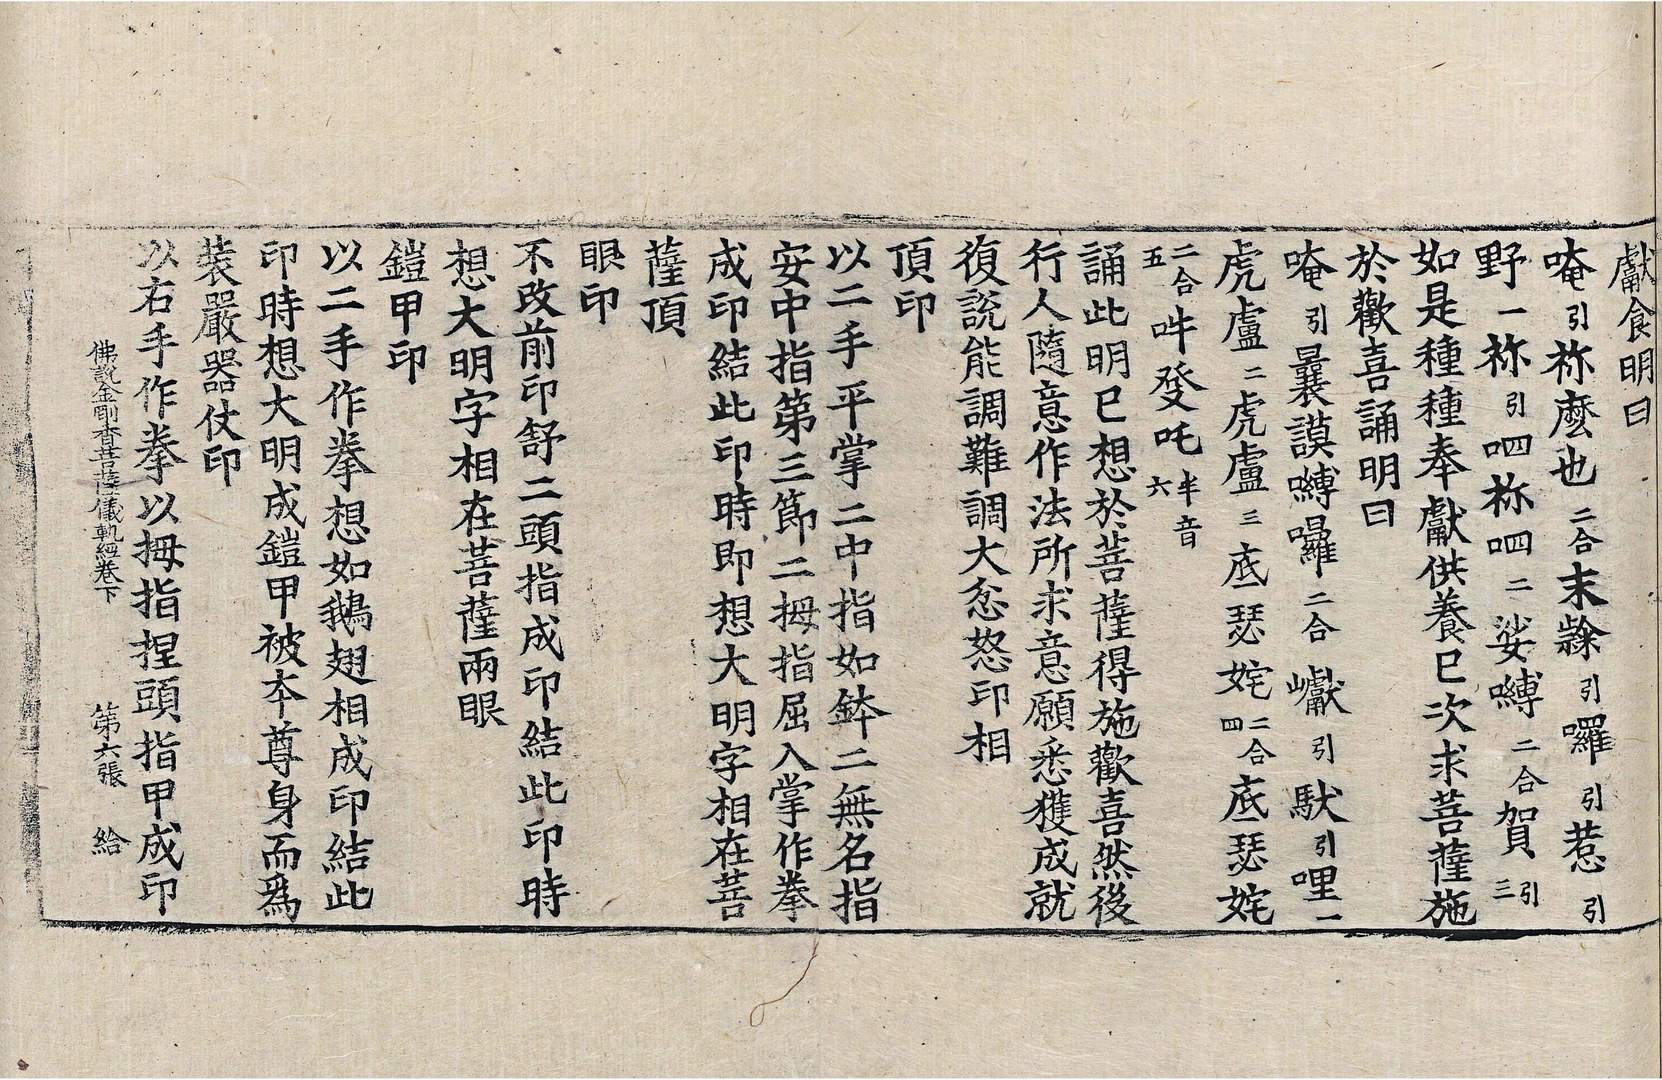 獻食明曰
唵引祢麼也二合末𪗨引囉引惹引
野一祢引呬祢呬二娑嚩二合賀引三
如是種種奉獻供養已次求菩薩施
於歡喜誦明曰
唵引曩謨嚩囉二合巘引馱引哩一
虎盧二虎盧三底瑟姹二合四底瑟姹
二合五吽癹吒半音六
誦此明已想於菩薩得施歡喜然後
行人隨意作法所求意願悉獲成就
復說能調難調大忿怒印相
頂印
以二手平掌二中指如鉢二無名指
安中指第三節二拇指屈入掌作拳
成印結此印時即想大明字相在菩
薩頂
眼印
不改前印舒二頭指成印結此印時
想大明字相在菩薩兩眼
鎧甲印
以二手作拳想如鵝翅相成印結此
印時想大明成鎧甲被本尊身而爲
装嚴器仗印
以右手作拳以拇指捏頭指甲成印
佛說金剛香菩薩儀軌經卷下 第六張 給